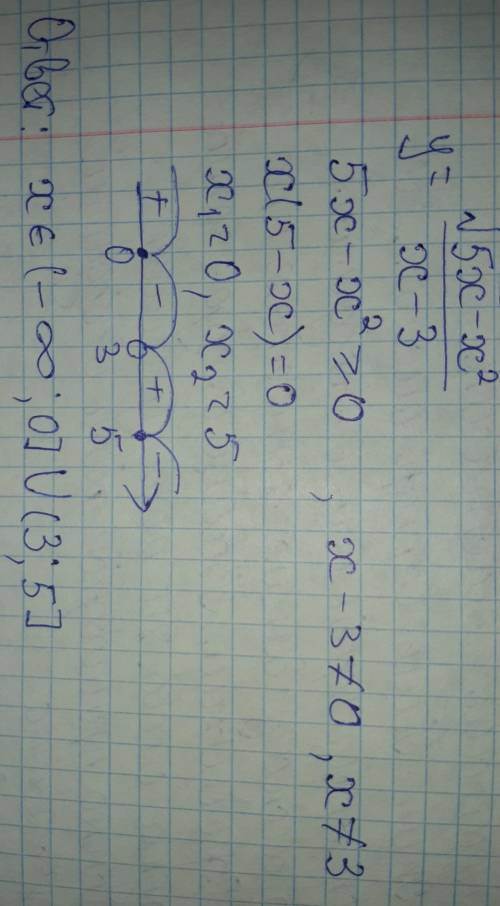 y = √(5x-x²) / (x-3)
5x-x² ⩾ 0 , x-3≠0, x≠3
x(5-x)=0
x₁=0, x₂=5
+ - + -
0 3 5
Ответ: x∈(-∞;0]∪(3;5]